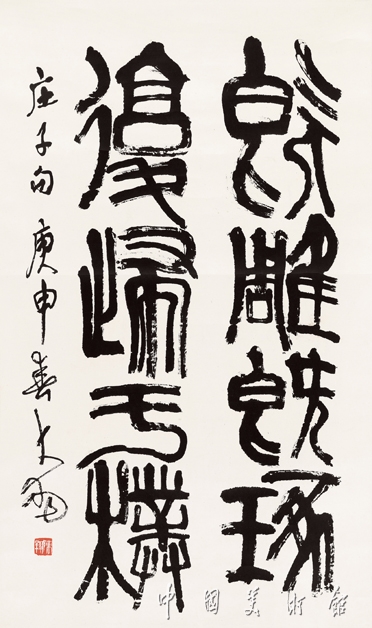 既雕既琢
復歸于樸
庄子句 庚申春大羽
中國美術館